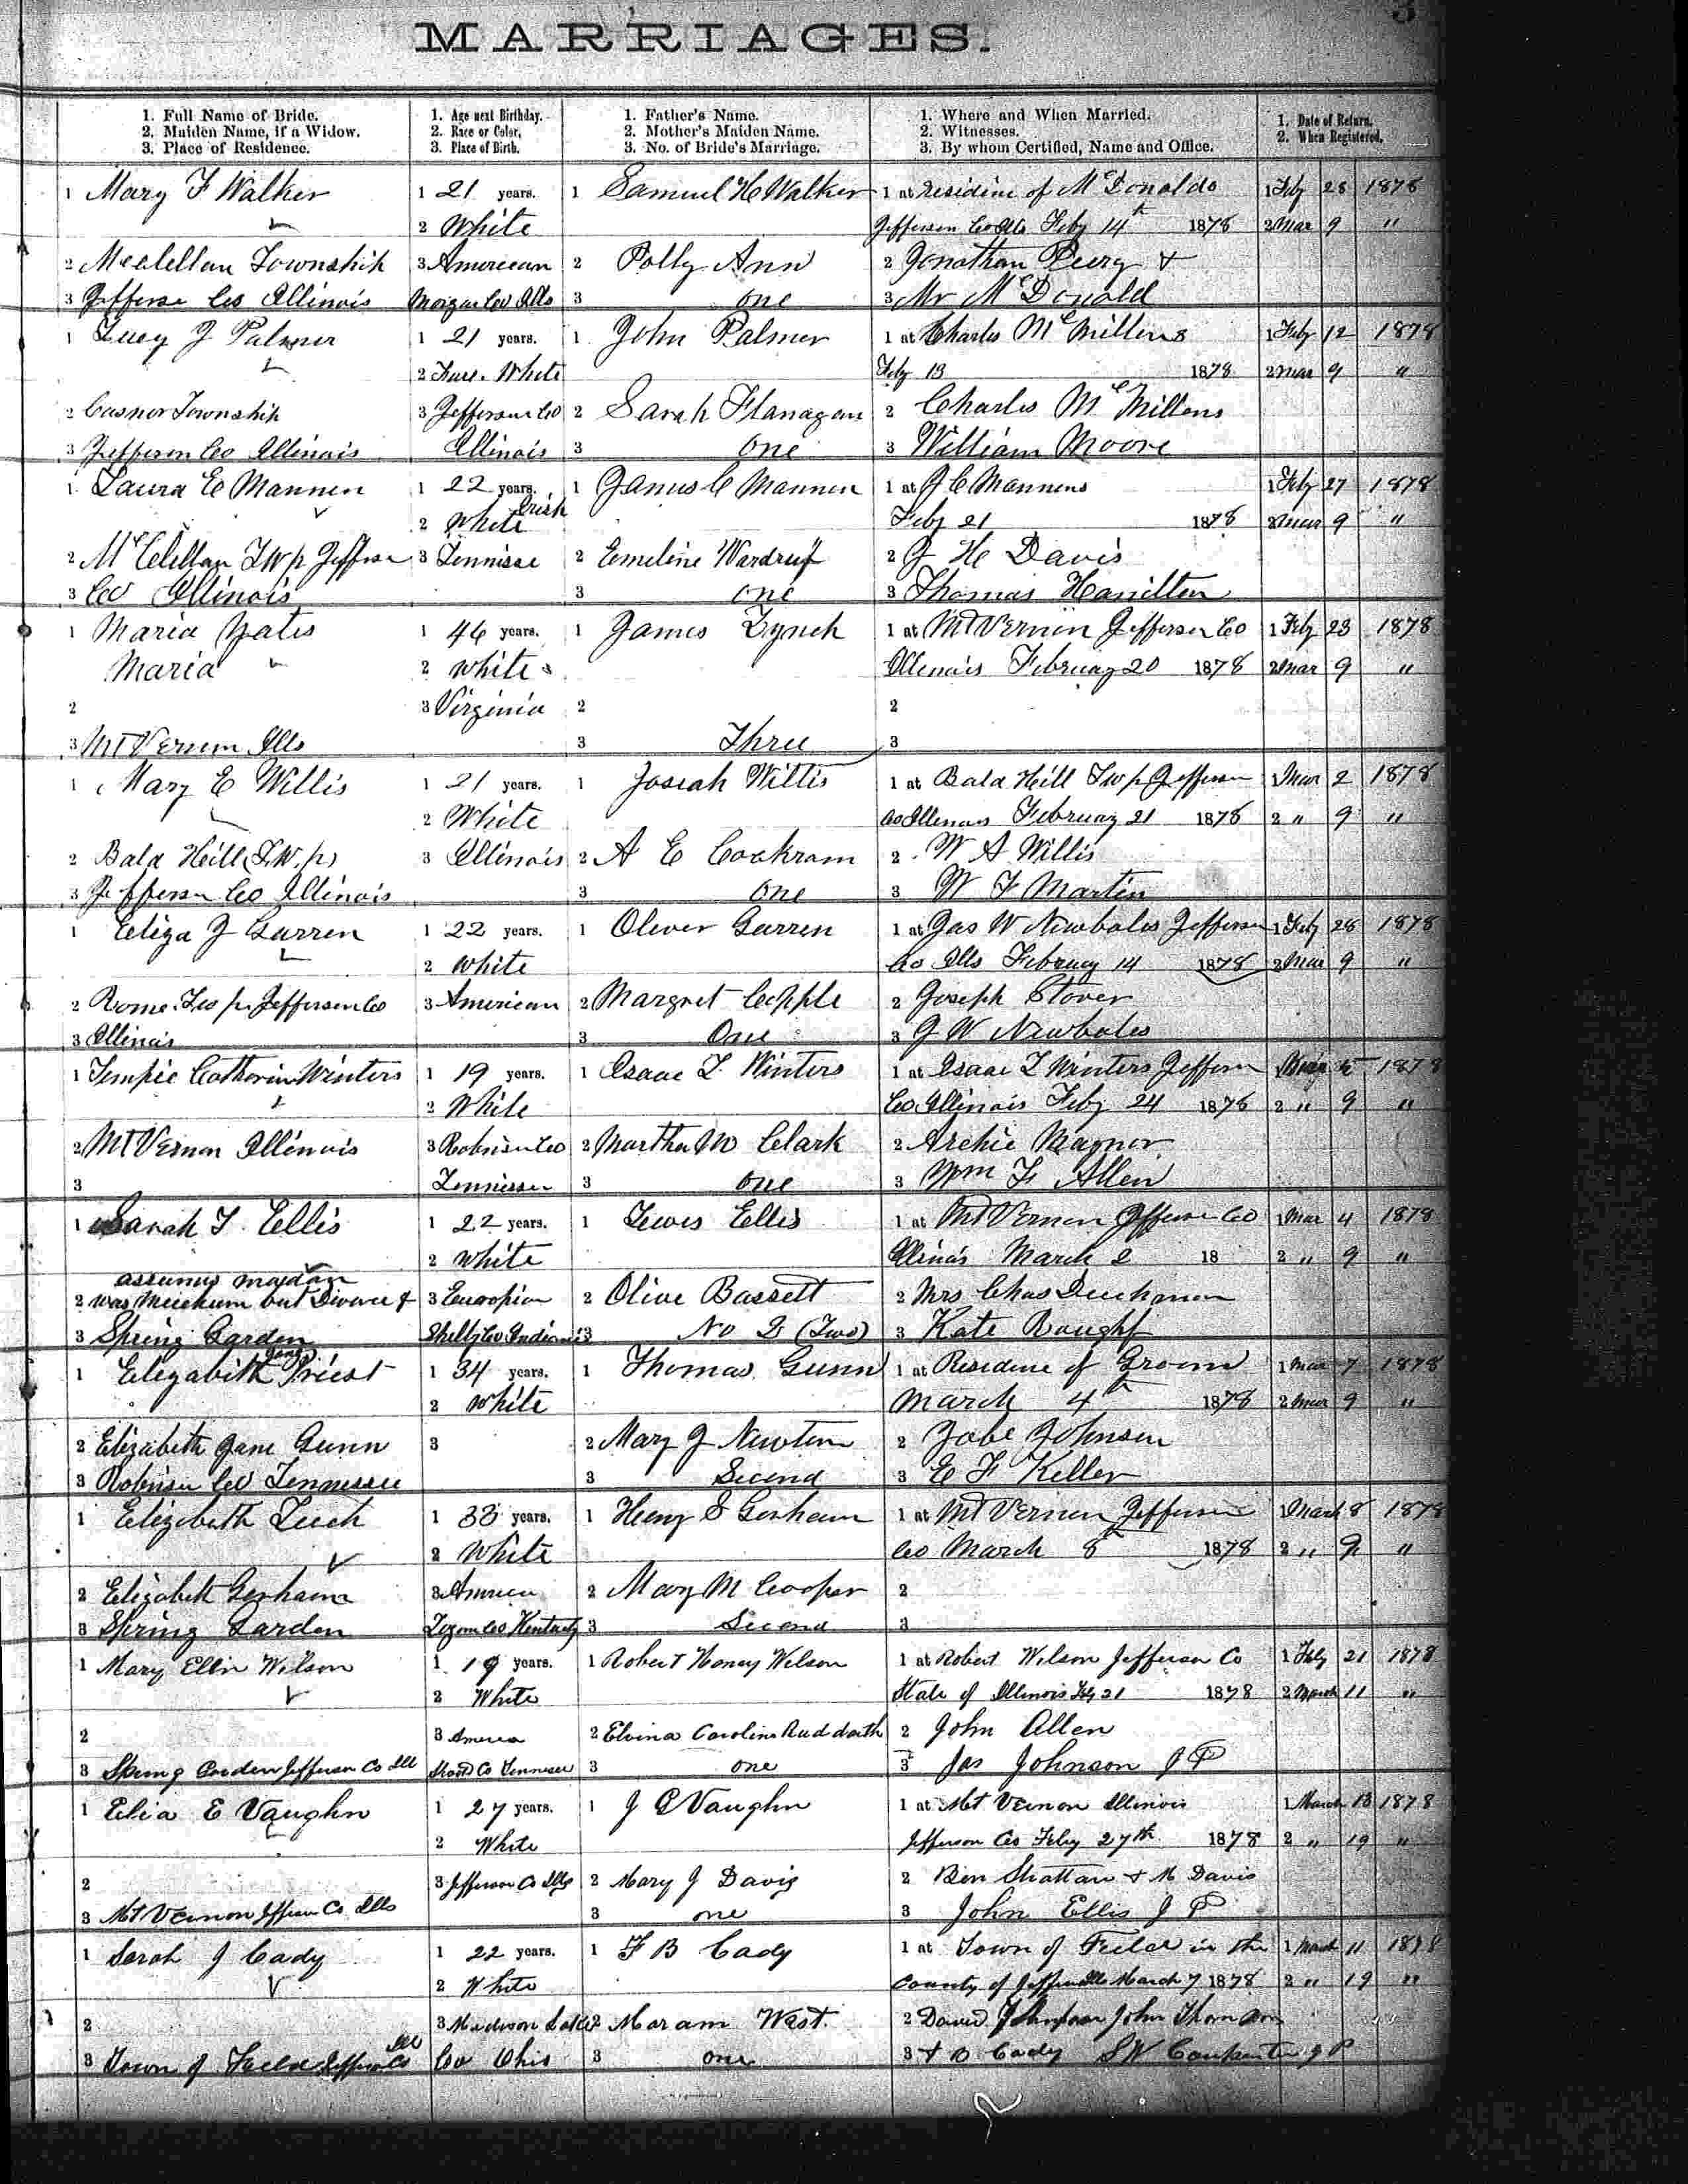 MARRIAGES.
1. Full Name of Bride. 1. Age next Birthday. 1. Father's Name. 1. Where and When Married. 1. Date of Return.
2. Maiden Name, if a Widow. 2. Race or Color. 2. Mother's Maiden Name. 2. Witnesses. 2. When Registered.
3. Place of Residence. 3. Place of Birth. 3. No. of Bride's Marriage. 3. By whom Certified, Name and Office.
1 Mary F Walker 1 21 years. 1 Samuel H Walker 1 at residine of McDonalds 1 Feby 28 1878
2 White Jefferson Co Ills Feby 14th 1878 2 Mar 9 "
2 Mcclellan Township 3 American 2 Polly Ann 2 Jonathan Peery &
3 Jefferso Co Illinois Morgan Co Ills 3 one 3 Mr McDonald
1 Lucy J Palmer 1 21 years. 1 John Palmer 1 at Charles McMillens 1 Feby 12 1878
2 White Feby 13 1878 2 Mar 9 "
2 Casner Township 3 Jefferson Co 2 Sarah Flanagan 2 Charles McMillens
3 Jefferson Co Illinois Illinois 3 one 3 William Moore
1 Laura E Mannen 1 22 years. 1 James C Mannen 1 at J C Mannens 1 Feby 27 1878
2 White Irish Feby 21 1878 2 Mar 9 "
2 McClellan Twp Jefferso 3 Tennisse 2 Emeline Wardruf 2 J H Davis
3 Co Illinois 3 one 3 Thomas Hamilton
1 Maria Yates 1 46 years. 1 James Lynch 1 at Mt Vernon Jefferson Co 1 Feby 23 1878
Maria 2 White Illinois February 20 1878 2 Mar 9 "
2 3 Virginia 2 2
3 Mt Vernon Ills 3 Three 3
1 Mary E Willis 1 21 years. 1 Josiah Willis 1 at Bald Hill Twp Jefferson 1 Mar 2 1878
2 White Co Illinois February 21 1878 2 " 9 "
2 Bald Hill (T.W.p) 3 Illinois 2 A E Cockram 2 W A Willis
3 Jefferson Co Illinois 3 one 3 W F Martin
1 Eliza J Garren 1 22 years. 1 Oliver Garren 1 at Jas W Newbales Jefferson 1 Feby 28 1878
2 White Co Ills February 14 1878 2 Mar 9 "
2 Rome Twp Jefferson Co 3 American 2 Margret Copple 2 Joseph Stover
3 Illinois 3 One 3 J W Newbales
1 Tempie Catherin Winters 1 19 years. 1 Isaac L Winters 1 at Isaac L Winters Jefferson 1878
2 White Co Illinois Feby 24 1878 2 " 9 "
2 Mt Vernon Illinois 3 Robinson Co 2 Martha M Clark 2 Archie Maynor
3 Tennissee 3 one 3 Wm F Allen
1 Sarah T. Ellis 1 22 years. 1 Lewis Ellis 1 at Mt Vernon Jefferson Co 1 Mar 4 1878
2 White Illinois March 2 18 2 " 9 "
assumes maidan
2 was Meickum but Divorce & 3 Europian 2 Olive Bassett 2 Mrs Chas Duchanan
3 Spring Garden Shelby Co Indiania 3 No 2 (Two) 3 Kate
1 Elizabeth Jane Priest 1 34 years. 1 Thomas Gunn 1 at Residene of Groom 1 Mar 7 1878
2 White March 4th 1878 2 Mar 9 "
2 Elizabeth Jane Gunn 3 2 Mary J Newton 2 Johnson
3 Robinson Co Tennessee 3 Second 3 E F Keller
1 Elizebeth Leech 1 33 years. 1 Henry S Gorham 1 at Mt Vernon Jefferson 1 March 8 1878
2 White Co March 8th 1878 2 " 9 "
2 Elizabeth Gorham 3 America 2 Mary M Cooper 2
3 Spring Garden Logan Co Kentucky 3 Second 3
1 Mary Ellin Wilson 1 19 years. 1 Robert Honey Wilson 1 at Robert Wilson Jefferson Co 1 Feby 21 1878
2 White State of Illinois Feb 21 1878 2 March 11 "
2 3 America 2 Elvina Carolina Ruddath 2 John Allen
3 Spring Garden Jefferson Co Ill Co Tennessee 3 one 3 Jas Johnson J P
1 Elia E Vaughn 1 27 years. 1 J C Vaughn 1 at Mt Vernon Illinois 1 March 13 1878
2 White Jefferson Co Feby 27th 1878 2 " 19 "
2 3 Jefferson Co Ills 2 Mary J Davis 2 Ben Shattan & M Davis
3 Mt Vernon Jefferson Co Ills 3 one 3 John Ellis J P
1 Sarah J Cady 1 22 years. 1 F B Cady 1 at Town of Field in the 1 March 11 1878
2 White County of Jefferson Ills March 7 1878 2 " 19 "
2 3 Madison Lake 2 Maram West. 2 David Johnson John Thomason
3 Town of Field Jefferson Co Ill Co Ohio 3 one 3 & B Cady S W Carpenter J P